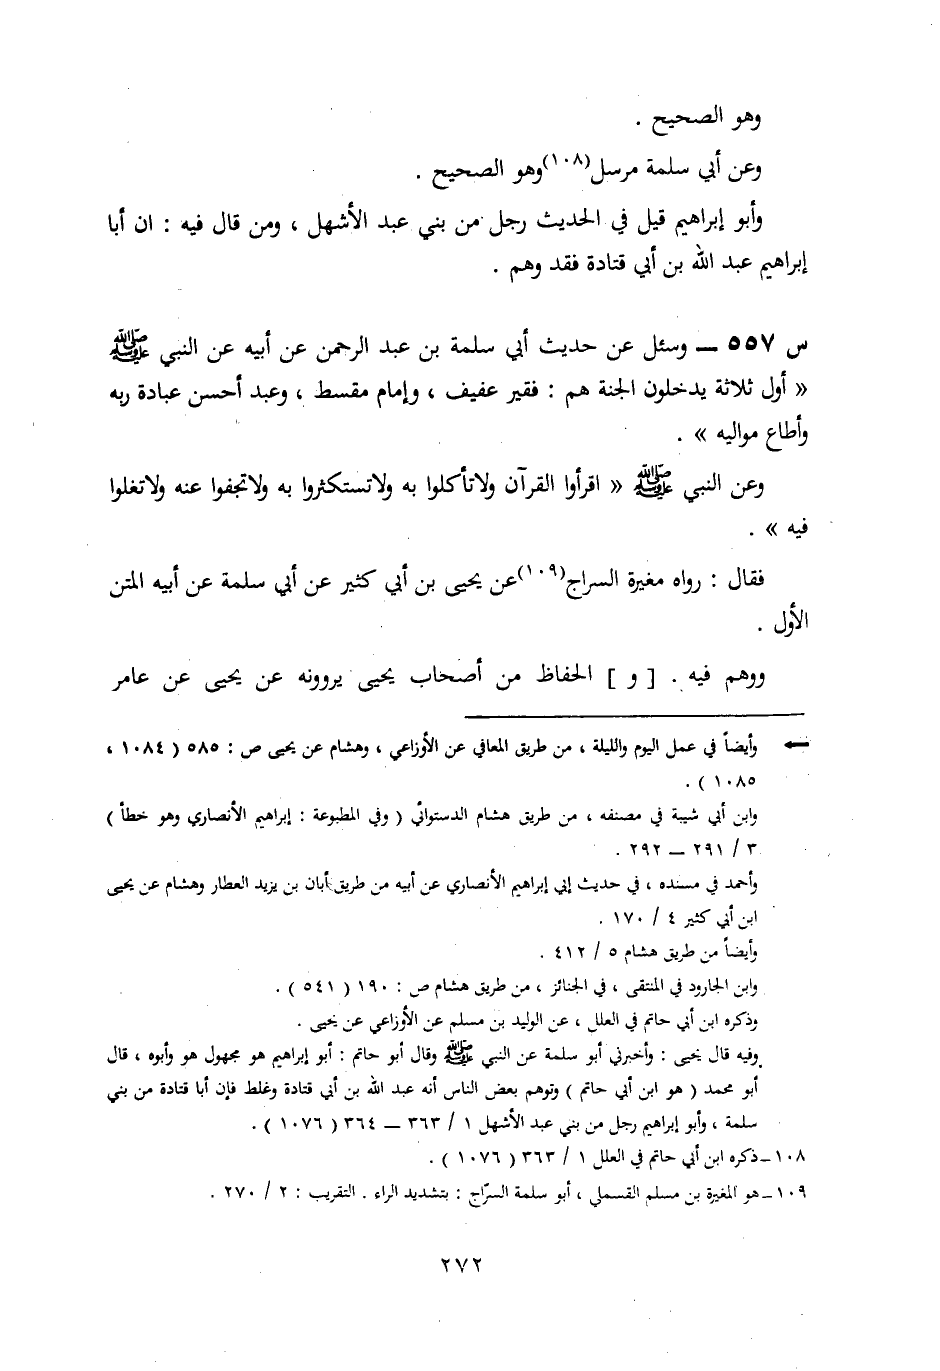 وهو الصحيح .
وعن أبي سلمة مرسل(١٠٨)وهو الصحيح .
وأبو إبراهيم قيل في الحديث رجل من بني عبد الأشهل ، ومن قال فيه : ان أبا
إبراهيم عبد الله بن أبي قتادة فقد وهم .
س ٥٥٧ ــ وسئل عن حديث أبي سلمة بن عبد الرحمن عن أبيه عن النبي ﷺ
« أول ثلاثة يدخلون الجنة هم : فقير عفيف ، وإمام مقسط ، وعبد أحسن عبادة ربه
وأطاع مواليه » .
وعن النبي ﷺ « اقرأوا القرآن ولاتأكلوا به ولاتستكثروا به ولاتجفوا عنه ولاتغلوا
فيه » .
فقال : رواه مغيرة السراج(١٠٩)عن يحيى بن أبي كثير عن أبي سلمة عن أبيه المتن
الأول .
ووهم فيه . [ و ] الحفاظ من أصحاب يحيى يروونه عن يحيى عن عامر
← وأيضاً في عمل اليوم والليلة ، من طريق المعافي عن الأوزاعي ، وهشام عن يحيى ص : ٥٨٥ ( ١٠٨٤ ،
١٠٨٥ ) .
وابن أبي شيبة في مصنفه ، من طريق هشام الدستوائي ( وفي المطبوعة : إبراهيم الأنصاري وهو خطأ )
٣ / ٢٩١ ــ ٢٩٢ .
وأحمد في مسنده ، في حديث إبي إبراهيم الأنصاري عن أبيه من طريق أبان بن يزيد العطار وهشام عن يحيى
ابن أبي كثير ٤ / ١٧٠ .
وأيضاً من طريق هشام ٥ / ٤١٢ .
وابن الجارود في المنتقى ، في الجنائز ، من طريق هشام ص : ١٩٠ ( ٥٤١ ) .
وذكره ابن أبي حاتم في العلل ، عن الوليد بن مسلم عن الأوزاعي عن يحيى .
وفيه قال يحيى : وأخبرني أبو سلمة عن النبي ﷺ وقال أبو حاتم : أبو إبراهيم هو مجهول هو وأبوه ، قال
أبو محمد ( هو ابن أبي حاتم ) وتوهم بعض الناس أنه عبد الله بن أبي قتادة وغلط فإن أبا قتادة من بني
سلمة ، وأبو إبراهيم رجل من بني عبد الأشهل ١ / ٣٦٣ ــ ٣٦٤ ( ١٠٧٦ ) .
١٠٨ــذكره ابن أبي حاتم في العلل ١ / ٣٦٣ ( ١٠٧٦ ) .
١٠٩ــهو المغيرة بن مسلم القسملي ، أبو سلمة السرّاج : بتشديد الراء . التقريب : ٢ / ٢٧٠ .
٢٧٢